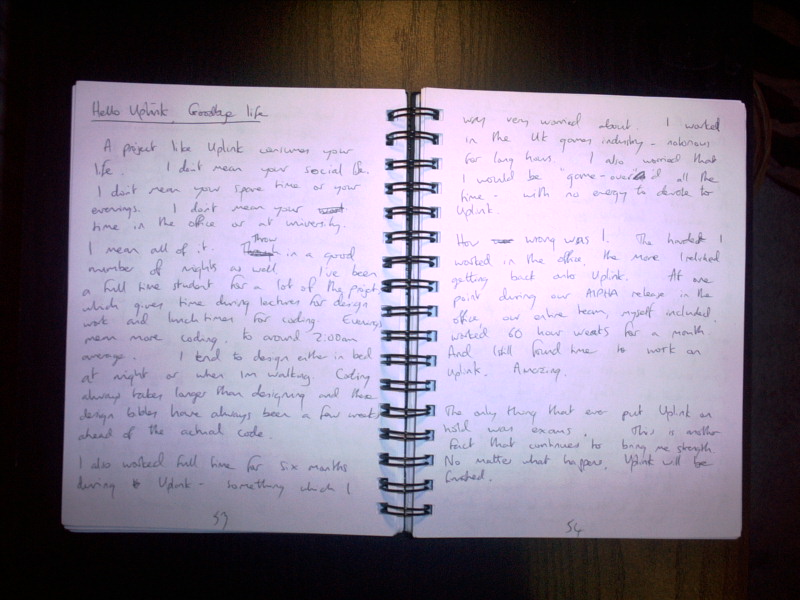 Hello Uplink, Goodbye life
A project like Uplink consumes your
life. I don't mean your social life.
I don't mean your spare time or your
evenings. I don't mean your
time in the office or at university.
I mean all of it. Throw in a good
number of nights as well. I've been
a full time student for a lot of the project
which gives time during lectures for design
work and lunchtimes for coding. Evenings
mean more coding, to around 2:00am
average. I tend to design either in bed
at night or when I'm walking. Coding
always takes longer than designing and these
design bibles have always been a few weeks
ahead of the actual code.
I also worked full time for six months
during Uplink - something which I
53
was very worried about. I worked
in the UK games industry - notorious
for long hours. I also worried that
I would be "game-over"d all the
time - with no energy to devote to
Uplink.
How wrong was I. The harder I
worked in the office, the more I relished
getting back onto Uplink. At one
point during our ALPHA release in the
office our entire team, myself included,
worked 60 hour weeks for a month.
And I still found time to work on
Uplink. Amazing.
The only thing that ever put Uplink on
hold was exams. This is another
fact that continues to bring me strength.
No matter what happens, Uplink will be
finished.
54